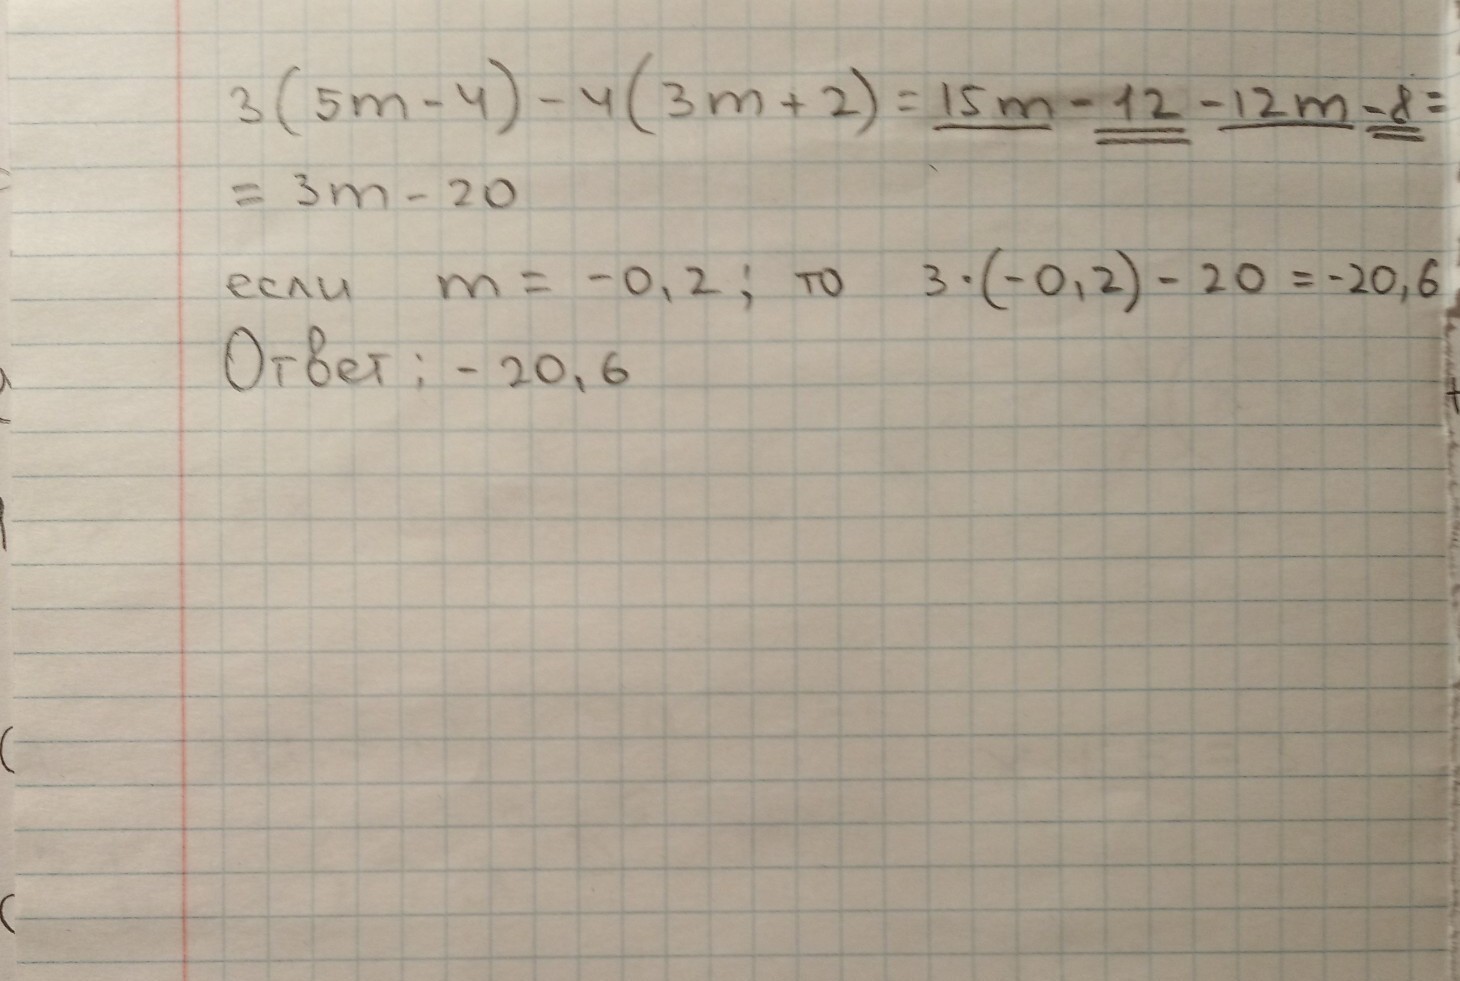 3(5m-4)-4(3m+2)=15m-12-12m-8=
=3m-20
если m=-0,2; то 3·(-0,2)-20=-20,6
Ответ: -20,6